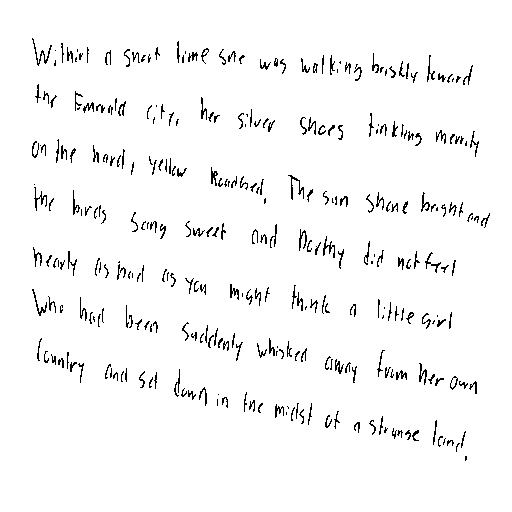 Within a short time she was walking briskly toward
the Emerald City, her silver shoes tinkling merrily
on the hard, yellow roadbed. The sun shone bright and
the birds sang sweet and Dorothy did not feel
nearly as bad as you might think a little girl
who had been suddenly whisked away from her own
country and set down in the midst of a strange land.